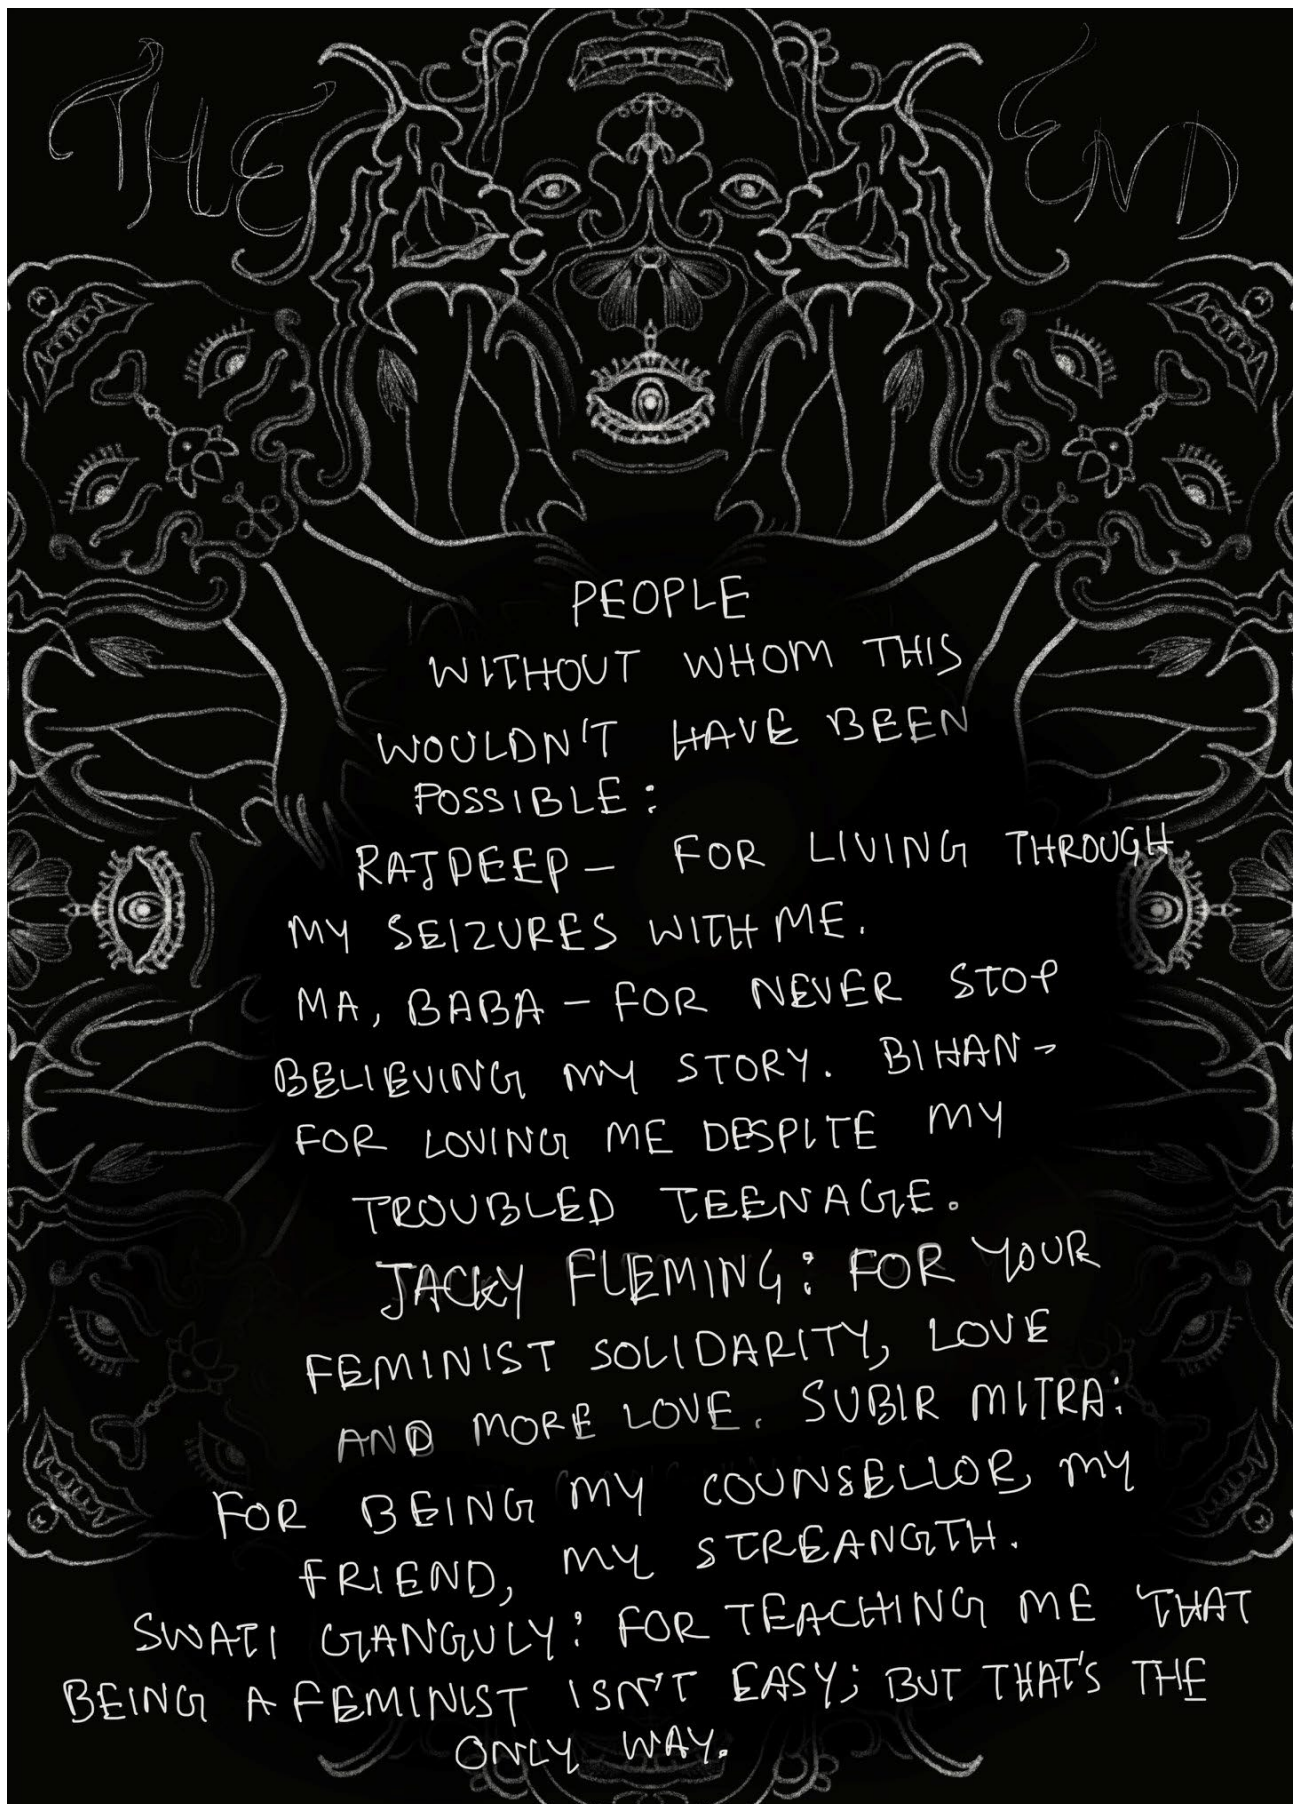 THE END
PEOPLE
WITHOUT WHOM THIS
WOULDN'T HAVE BEEN
POSSIBLE:
RAJDEEP- FOR LIVING THROUGH
MY SEIZURES WITH ME.
MA, BABA - FOR NEVER STOP
BELIEVING MY STORY. BIHAN-
FOR LOVING ME DESPITE MY
TROUBLED TEENAGE.
JACKY FLEMING: FOR YOUR
FEMINIST SOLIDARITY, LOVE
AND MORE LOVE. SUBIR MITRA:
FOR BEING MY COUNSELLOR, MY
FRIEND, MY STREANGTH.
SWATI GANGULY: FOR TEACHING ME THAT
BEING A FEMINIST ISN'T EASY; BUT THAT'S THE
ONLY WAY.